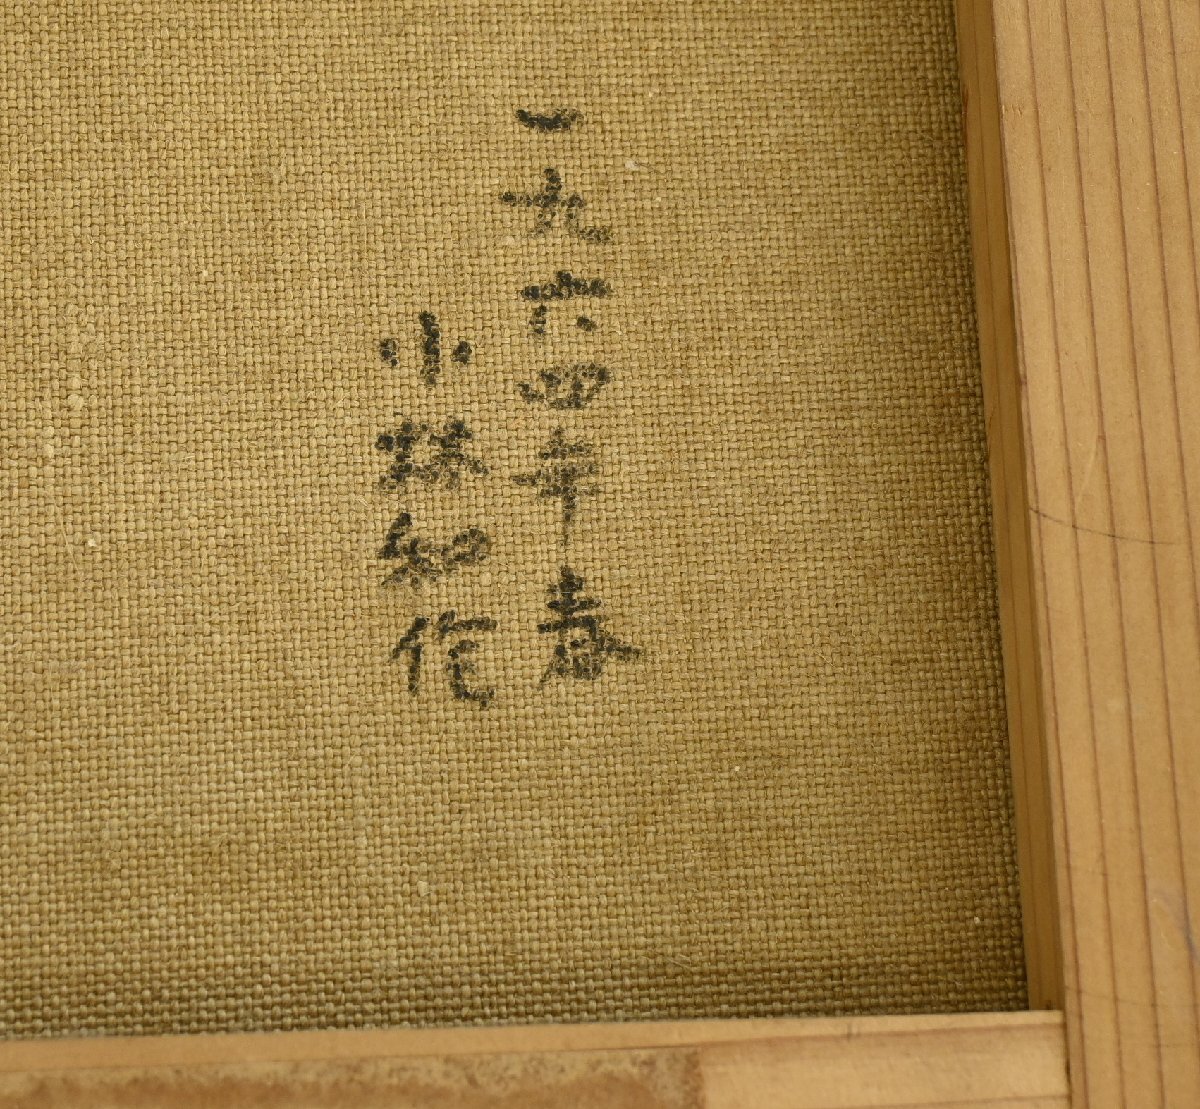 一九六四年春
小林和作